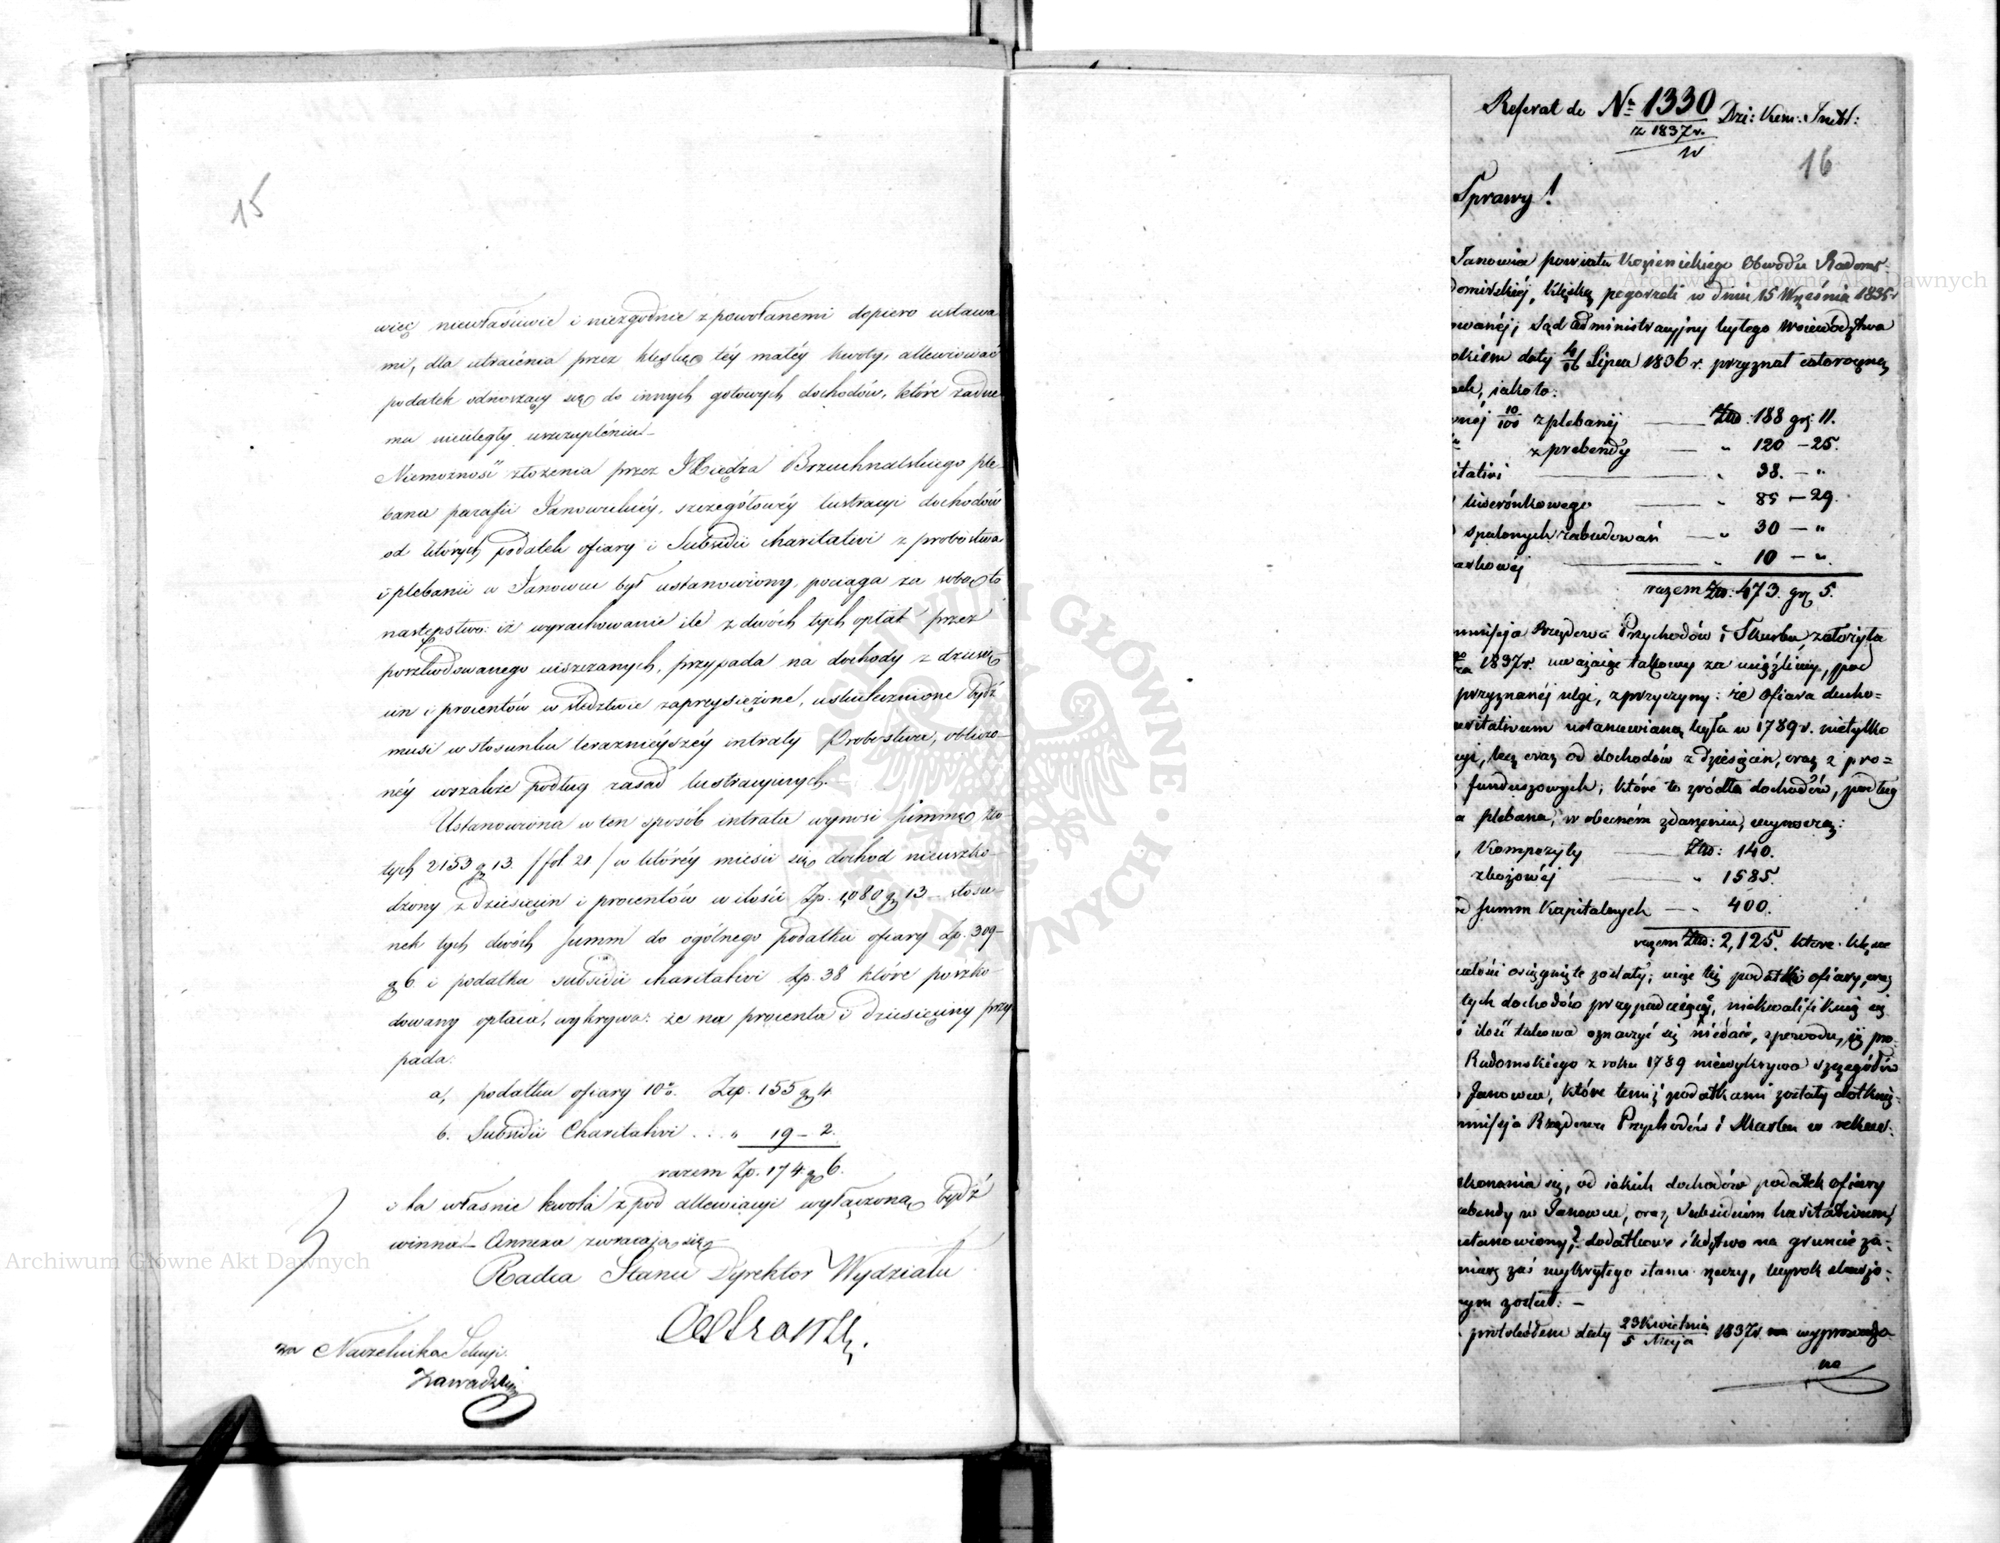 15
więc niewłaściwie i niezgodnie z powołanemi dopiero ustawa
mi, dla utracenia przez klęskę téy małéy kwoty, allewiować
podatek odnoszący się do innych gotowych dochodów, które żadne
mu nieuległy uszczupleniu.
Niemożność złożenia przez Xiędza Brzuchnalskiego ple-
bana parafii Janowieckiéy, szczegółowéy lustracyi dochodów
od których podatek ofiary i Subsidii charitativi z probostwa
i plebanii w Janowcu był ustanowiony, pociąga za sobą to
następstwo: iż wyrachowanie ile z dwóch tych opłat przez
poszkodowanego uiszczanych, przypada na dochody z dziesię
cin i procentów w śledztwie zaprzysiężone, uskutecznione bydź
musi w stosunku teraznieyszéy intraty Probostwa, obliczo-
néy wszakże podług zasad lustracyinych.
Ustanowiona w ten sposób intrata wynosi summę zło-
tych 2153 gr 13. /fol 21/ w któréy mieści się dochod nieuszko-
dzony z dziesięcin i procentów w ilości Zp. 1,080 gr 13 stosu-
nek tych dwóch summ do ogólnego podatku ofiary Zp. 309-
gr 6 i podatku subsidii charitativi Zp. 38 które poszko-
dowany opłaca, wykrywa: że na procenta i dziesięciny przy
pada:
a, podatku ofiary 10%. Zzp. 155 gr 4
b. Subsidii Charitativi . . . " 19 – 2.
razem Zp. 174 gr 6.
i ta właśnie kwota z pod allewiacyi wyłączoną bydź
winna – Annexa zwracają się
Radca Stanu Dyrektor Wydziału
za Naczelnika Sekcyi.
Zawadzki
Referat do Nr 1330
z 1837 r.
16
Sprawy!
Janowca powiatu Kozienickiego Obwodu Radoms-
domirskiéj, klęską pogorzeli w dniu 15 Września 1835 r
owanéj; Sąd administracyjny byłego Województwa
okiem daty 4/16 Lipca 1836 r. przyznał całoroczną
ach, jako to:
wnéj 10/100 z plebanij Złp. 188 gr: 11.
z prebendy " 120 – 25.
itativi " 38. – "
liwerónkowego " 85 – 29.
spalonych zabudowań " 30 – "
arkowéj " 10 – ".
razem Złp: 473. gr 5.
mmissja Rządowa Przychodów i Skarbu założyła
1837 r. uważając takowy za uciążliwy, pod
przyznanéj ulgi, z przyczyny: że ofiara ducho=
aritativum ustanowioną była w 1789 r. nietylko
cyi, lecz oraz od dochodów z dziesięcin, oraz z pro=
funduszowych; które to źródła dochodów, podług
a plebana, w obecném zdarzeniu, wynoszą:
Kompozyty Złp: 140.
zbożowéj " 1585.
od summ Kapitalnych – 400.
razem Złp: 2,125. które klęsce
całości osiągnięte zostały; więc téż podatki ofiary, oraz
tych dochodów przypadającéj, niekwalifikują się
ilość takowa oznaczyć się niedaie, z powodu, iż pro-
Radomskiego z roku 1789 niewykrywa szczegółów
Janowcu, które temiż podatkami zostały dotknię-
mmissja Rządowa Przychodów i Skarbu w rekur-
ekonania się, od jakich dochodów podatek ofiary
ebendy w Janowcu, oraz, Subsidium haritativum,
ustanowiony? dodatkowe śledztwo na gruncie za-
miarę zaś wykrytego stanu rzeczy, wyrok
nym został: –
protokółem daty 23 Kwietnia / 5 Maja 1837 r. wyprowadzo
na
Archiwum Główne Akt Dawnych
Archiwum Główne Akt Dawnych
ARCHIWUM GŁÓWNE AKT DAWNYCH